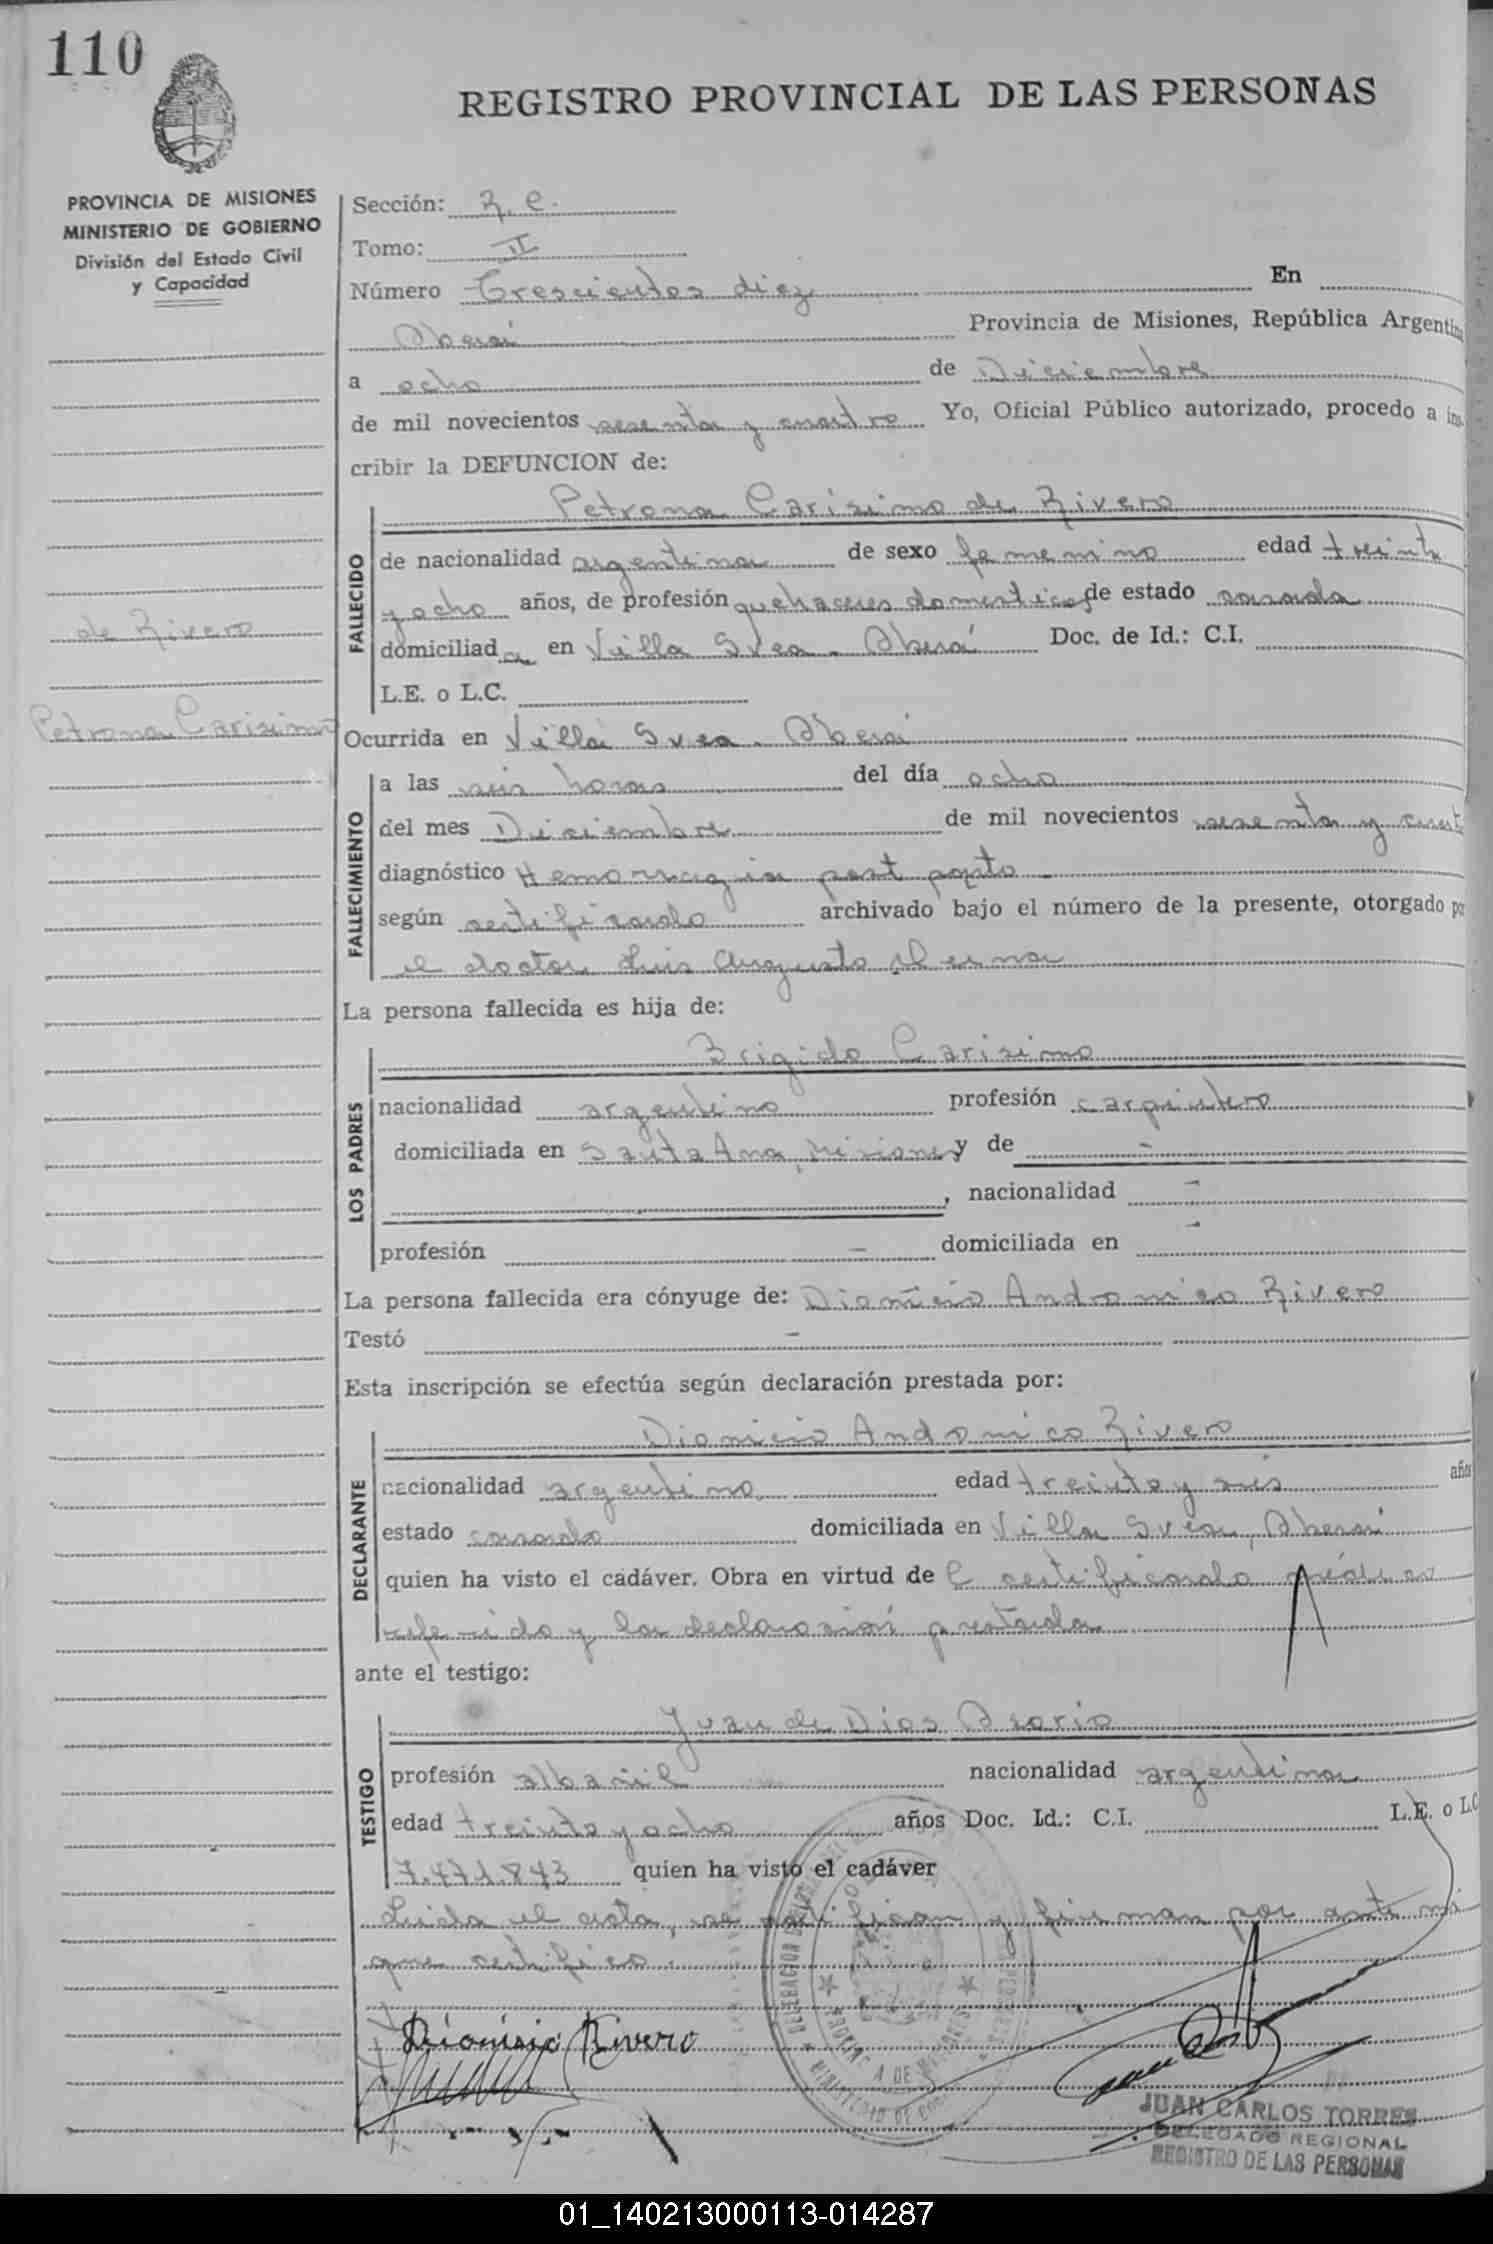 110
REGISTRO PROVINCIAL DE LAS PERSONAS
PROVINCIA DE MISIONES
MINISTERIO DE GOBIERNO
División del Estado Civil
y Capacidad
Sección:
Tomo: II
Número Trescientos diez En
Oberá Provincia de Misiones, República Argentina
a ocho de Diciembre
de mil novecientos sesenta y cuatro Yo, Oficial Público autorizado, procedo a ins-
cribir la DEFUNCION de:
Petrona Carisimo de Rivero
FALLECIDO
de nacionalidad argentina de sexo femenino edad treinta
y ocho años, de profesión quehaceres domesticos de estado casada
de Rivero
domiciliada en Villa Svea - Oberá Doc. de Id.: C.I.
L.E. o L.C.
Petrona Carisimo
Ocurrida en Villa Svea - Oberá
FALLECIMIENTO
a las seis horas del día ocho
del mes Diciembre de mil novecientos sesenta y cuat
diagnóstico Hemorragia post parto
según certificado archivado bajo el número de la presente, otorgado por
el doctor Luis Augusto
La persona fallecida es hija de:
LOS PADRES
Brigido Carisimo
nacionalidad argentino profesión carpintero
domiciliada en Santa Ana, Misiones y de -
, nacionalidad -
profesión - domiciliada en -
La persona fallecida era cónyuge de: Dionicio Andronico Rivero
Testó -
Esta inscripción se efectúa según declaración prestada por:
DECLARANTE
Dionicio Andonico Rivero
nacionalidad argentino edad treinta y seis años
estado casado domiciliada en Villa Svea, Oberá
quien ha visto el cadáver. Obra en virtud de l certificado médico
referido y la declaración prestada
ante el testigo:
TESTIGO
Juan de Dios Osorio
profesión albañil nacionalidad argentina
edad treinta y ocho años Doc. Id.: C.I. L.E. o L.C
7.471.843 quien ha visto el cadáver
Leida el acta, se ratifican y firman por ante mi
que certifico.
Dionisio Rivero
JUAN CARLOS TORRES
DELEGADO REGIONAL
REGISTRO DE LAS PERSONAS
01_140213000113-014287